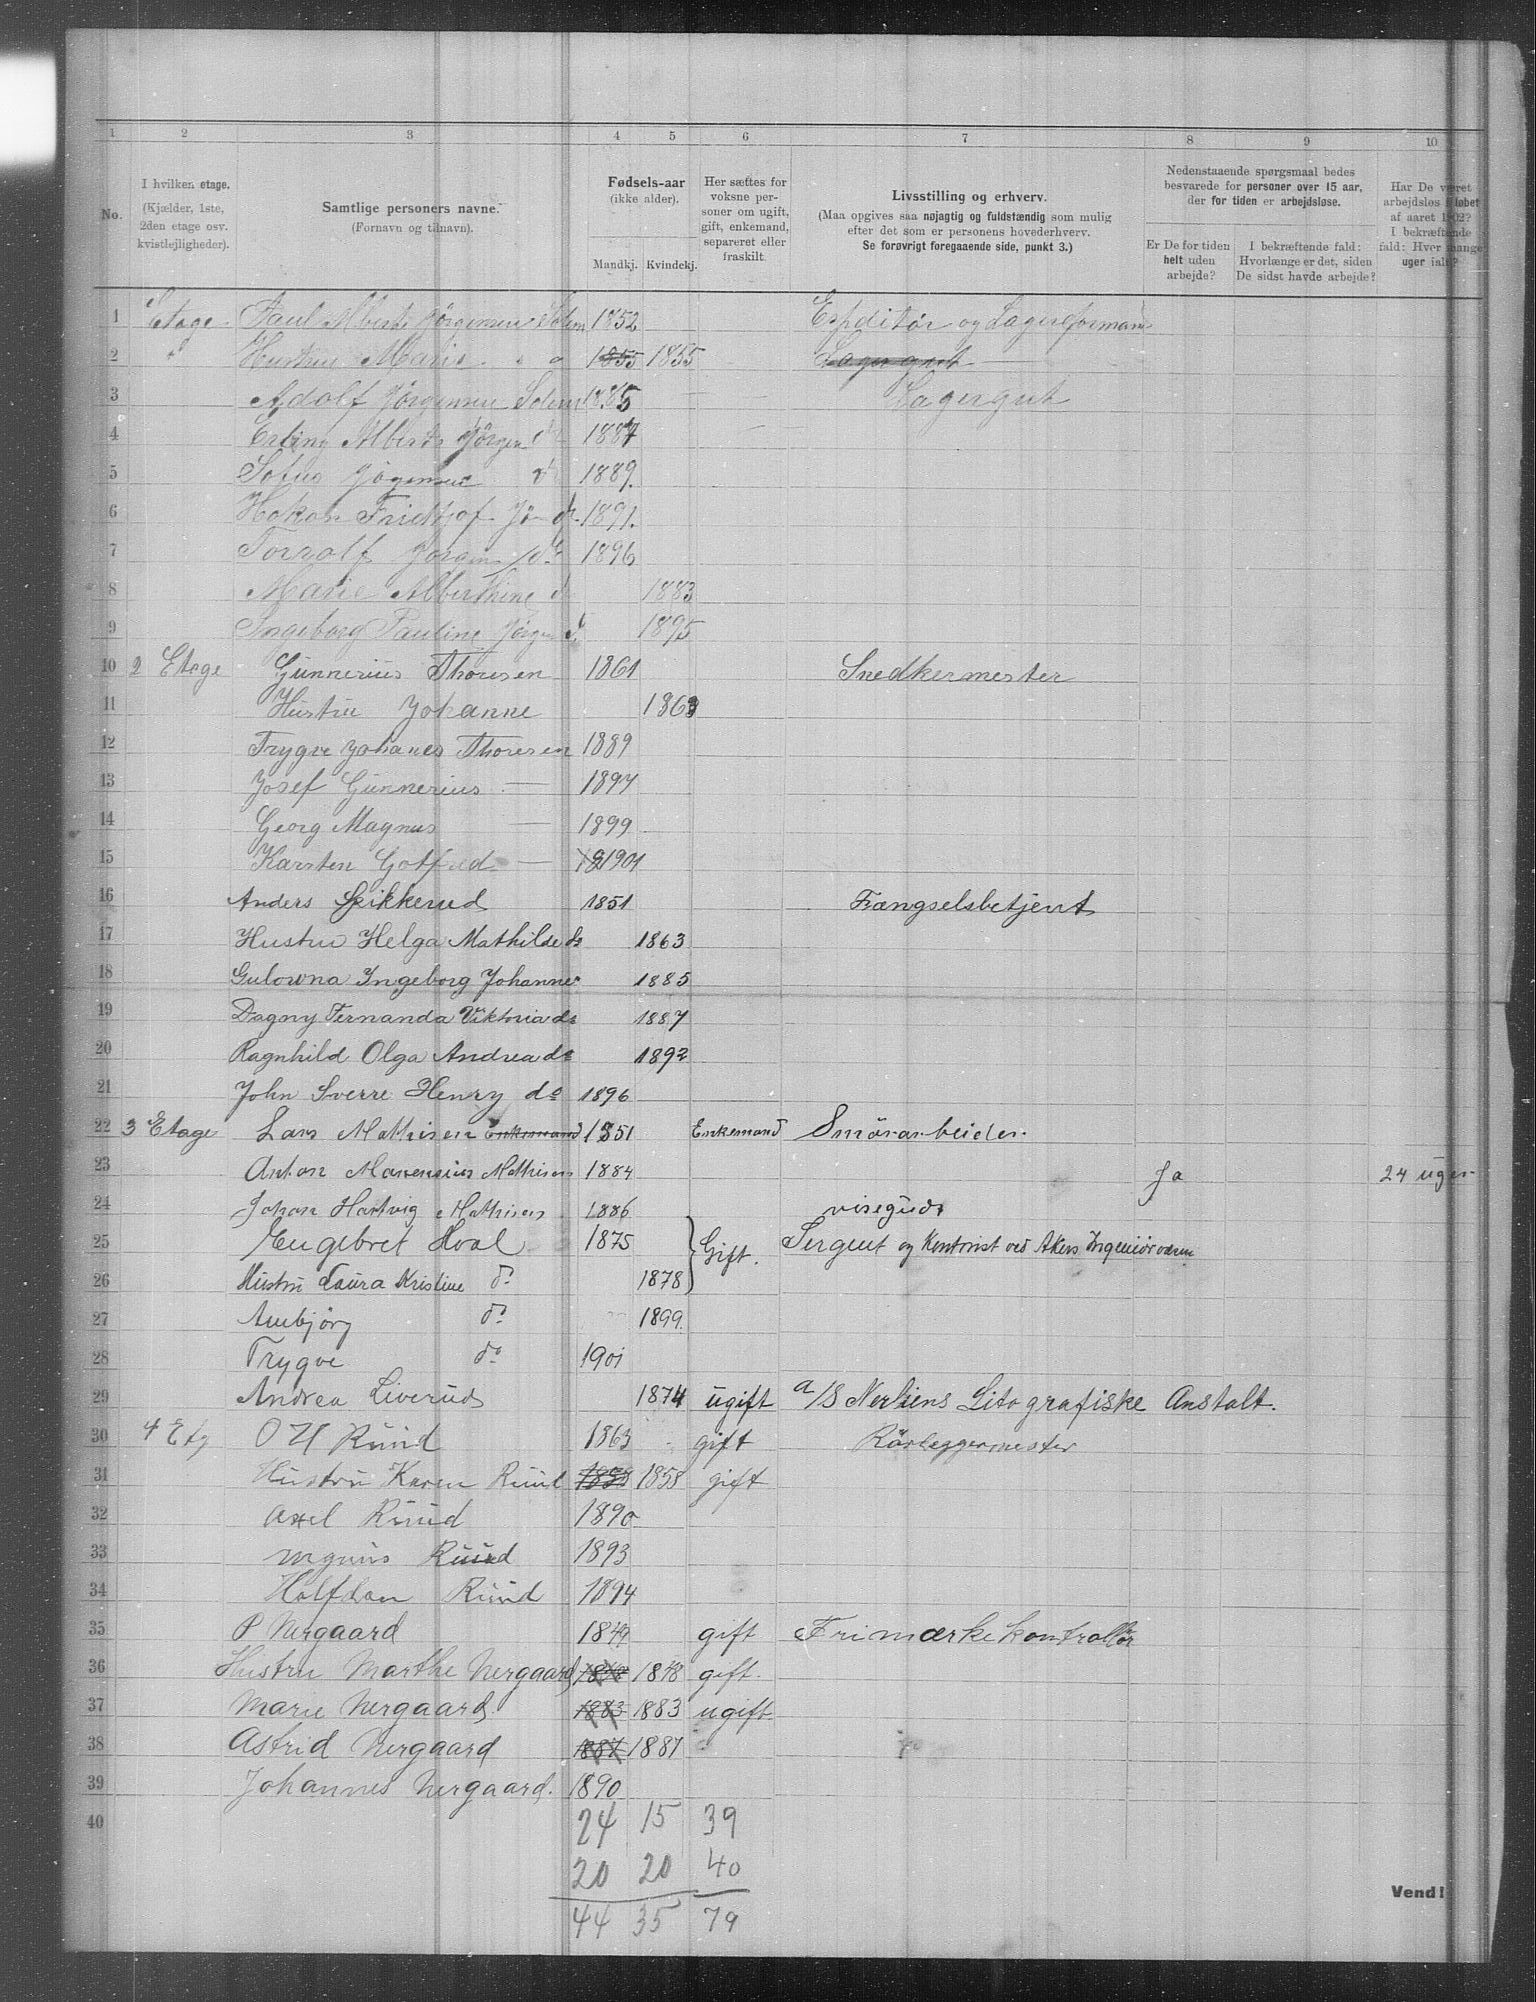 1 2 3 4 5 6 7 8 9 10
No.
I hvilken etage.
(Kjælder, 1ste,
2den etage osv.
kvistlejligheder).
Samtlige personers navne.
(Fornavn og tilnavn).
Fødsels-aar
(ikke alder).
Mandkj. Kvindekj.
Her sættes for
voksne per-
soner om ugift,
gift, enkemand,
separeret eller
fraskilt.
Livsstilling og erhverv.
(Maa opgives saa nøjagtig og fuldstændig som mulig
efter det som er personens hovederhverv.
Se forøvrigt foregaaende side, punkt 3.)
Nedenstaaende spørgsmaal bedes
besvarede for personer over 15 aar,
der for tiden er arbejdsløse.
Er De for tiden
helt uden
arbejde?
I bekræftende fald:
Hvorlænge er det, siden
De sidst havde arbejde?
Har De været
arbejdsløs i løbet
af aaret 1902?
I bekræftende
fald: Hver mange
uger ialt?
1 Etage Paul Alberts Jørgensen Solem 1852 Expeditør og Lagerformann
2 " Hustru Marie " " 1855 1855 Lagergut
3 Adolf Jørgensen Solem 1885 Lagergut
4 Erling Alberts Jørgen do 1887
5 Sofus Jögensen do 1889.
6 Hakon Fridtjof Jö do 1891.
7 Torrolf Jørgen do 1896
8 Marie Alberthine do 1883
9 Ingeborg Pauline Jørgen do 1895
10 2 Etage Gunnerius Thoresen 1861 Snedkermester
11 Hustru Johanne 1863
12 Trygve Johanes Thoresen 1889
13 Josef Gunnerius — 1897
14 Georg Magnus — 1899
15 Karsten Gotfred — 1901
16 Anders Spikkerud 1851 Fængselsbetjent
17 Hustru Helga Mathilde do 1863
18 Gulowna Ingeborg Johanne 1885
19 Dagny Fernanda Viktoria do 1887
20 Ragnhild Olga Andrea do 1892
21 John Sverre Henry do 1896
22 3 Etage Lars Mathisen Enkemand 1851 Enkemand Smörarbeider
23 Anton Marensius Mathisen 1884 Ja 24 uger
24 Johan Hartvig Mathisen 1886 visegudt
25 Engebret Hval 1875 Gift. Sergent og Kontorist ved Akers Ingeniørvæsen
26 Hustru Laura Kristine do 1878
27 Aubjörg do 1899.
28 Trygve do 1901
29 Andrea Liverud 1874 ugift a/S Nerliens Litografiske Anstalt.
30 4 Etg O H Ruud 1863 gift Rörleggermester
31 Hustru Karen Ruud 1858 1858 gift
32 Axel Ruud 1890
33 Magnus Ruud 1893
34 Halfdan Ruud 1894
35 P Nergaard 1849 gift Frimærkekontrollör
36 Hustru Marthe Nergaard 1848 1848 gift.
37 Marie Nergaard 1883 1883 ugift
38 Astrid Nergaard 1887 1887
39 Johannes Nergaard. 1890
40 24 15 39
20 20 40
44 35 79
Vend!